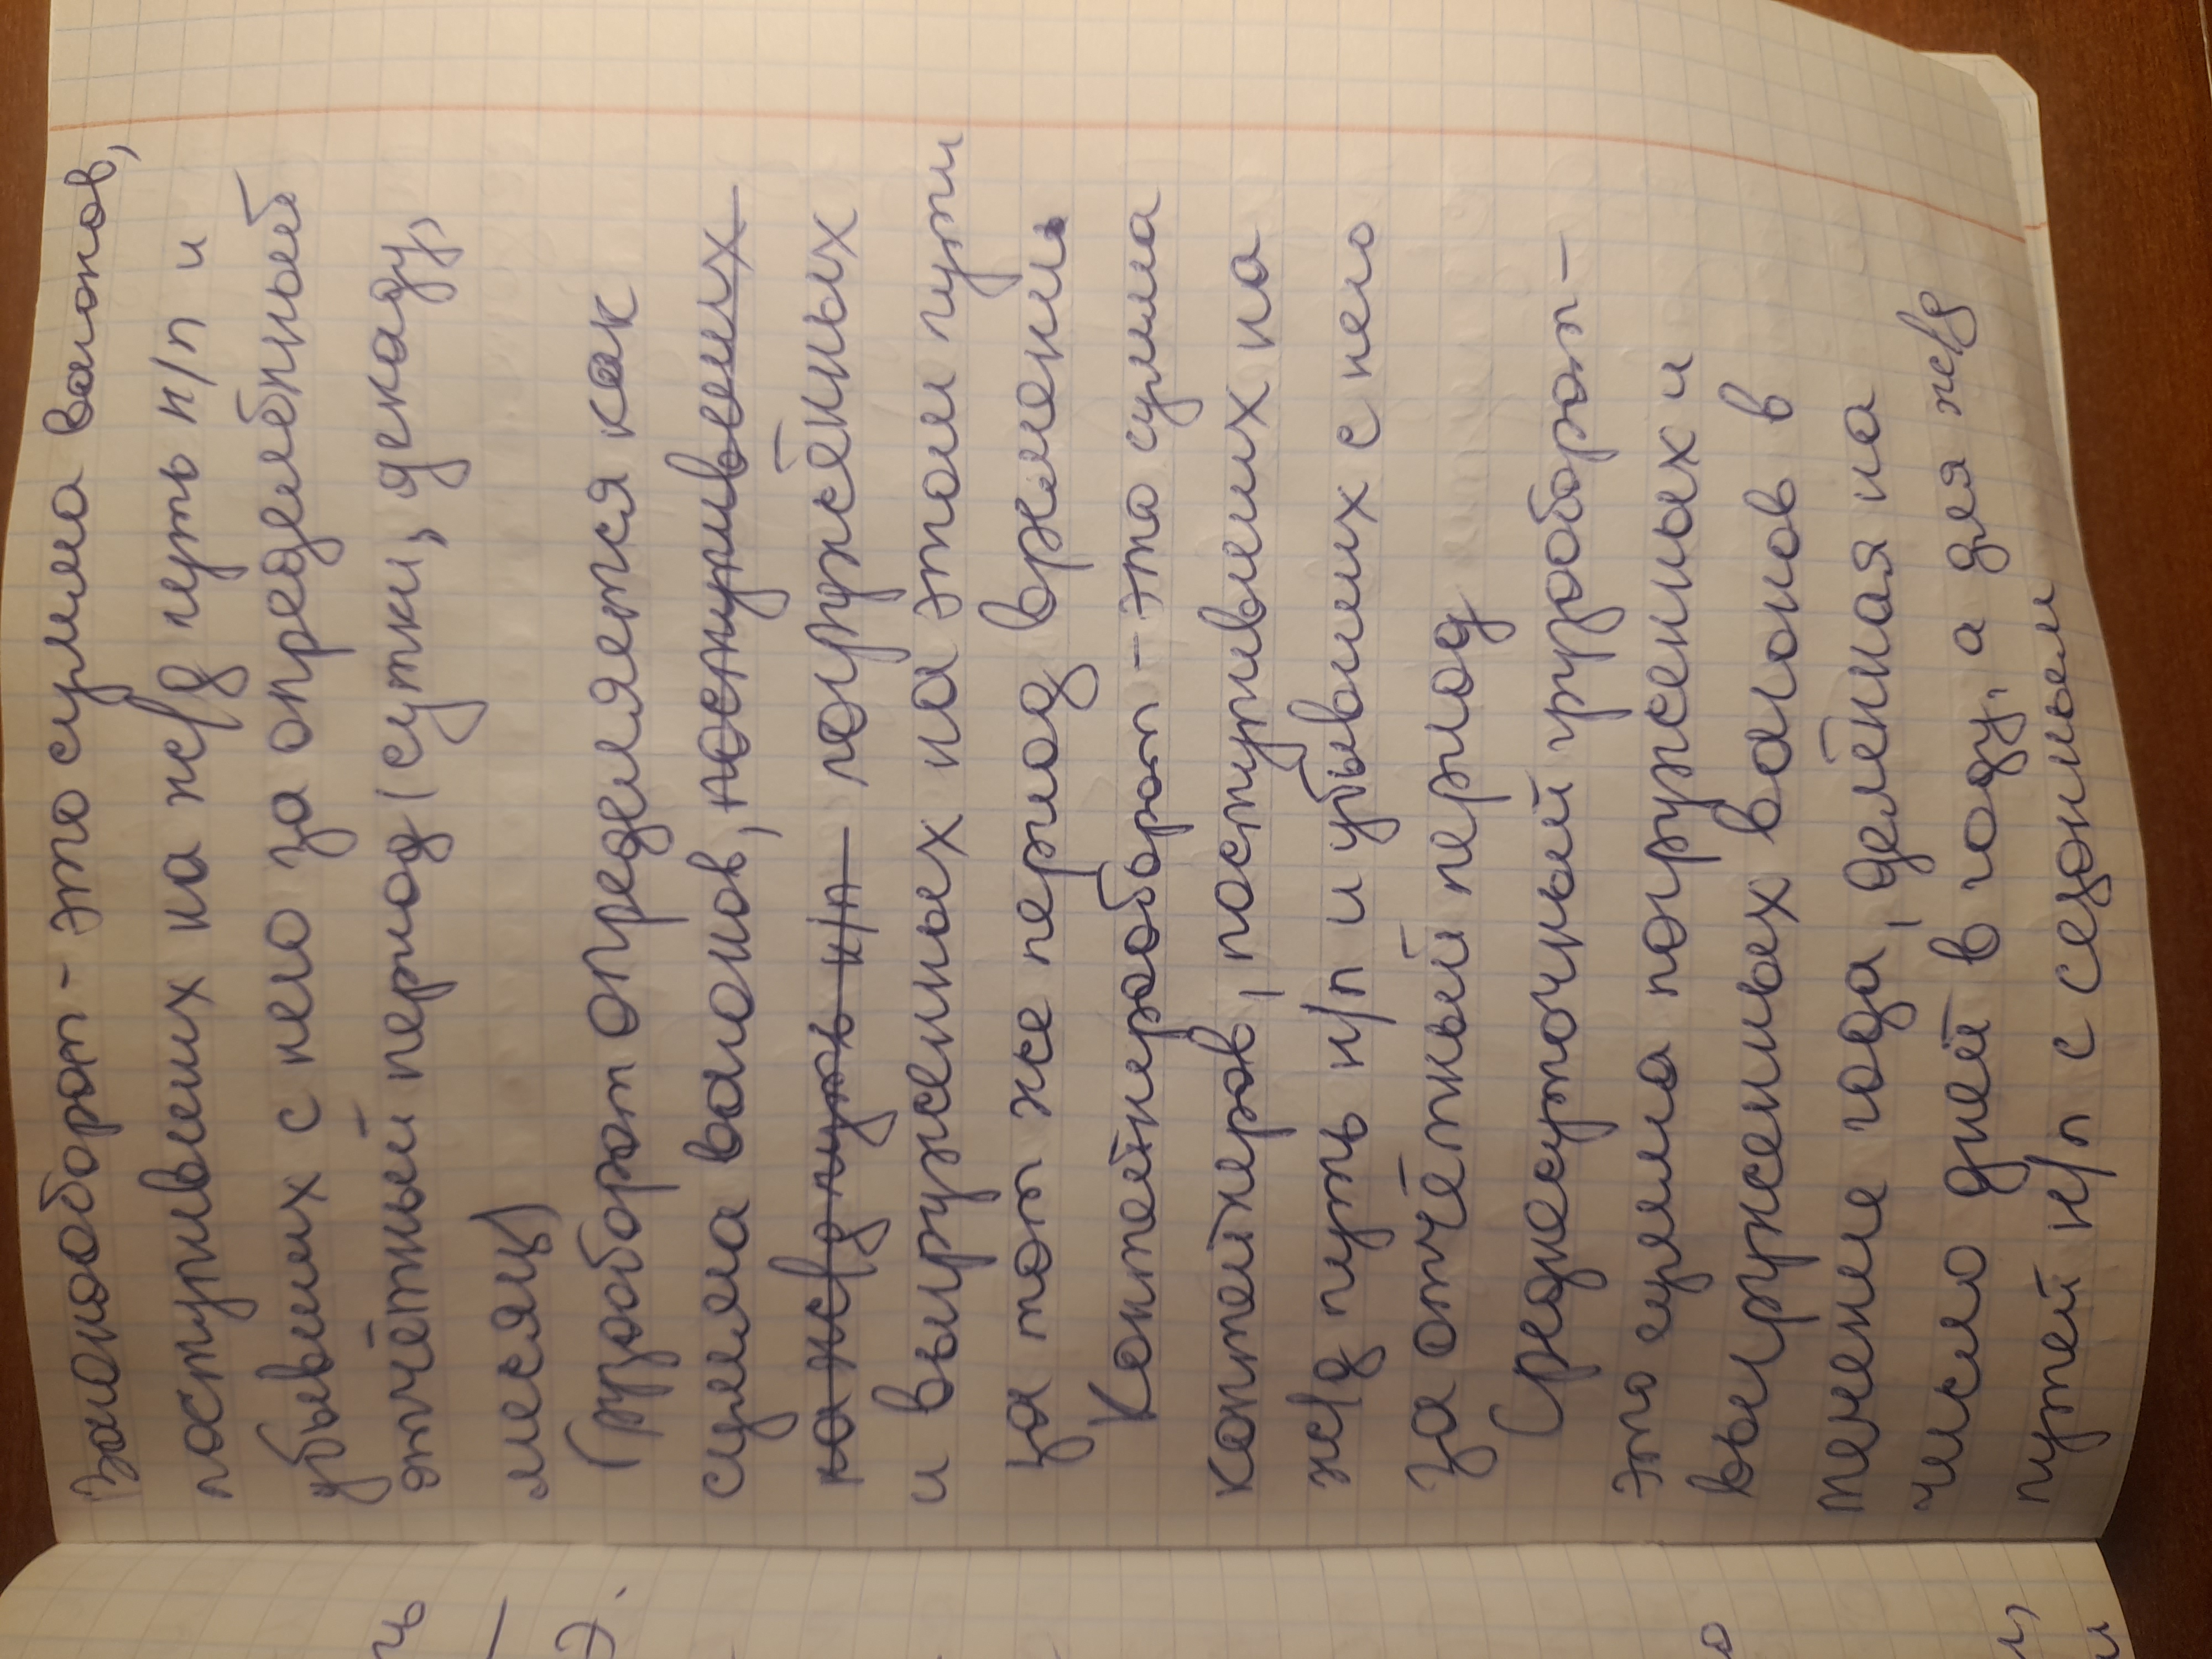 Вагонооборот - это сумма вагонов,
поступивших на ж/д путь н/п и
убывших с него за определённый
отчётный период (сутки, декаду,
месяц)
Грузооборот определяется как
сумма вагонов, поступивших
на ж/д путь н/п погружённых
и выгруженных на этом пути
за тот же период времени
Контейнерооборот - это сумма
контейнеров, поступивших на
ж/д путь н/п и убывших с него
за отчётный период
Среднесуточный грузооборот -
это сумма погруженных и
выгруженных вагонов в
течение года, делённая на
число дней в году, а для ж/д
путей н/п с сезонным